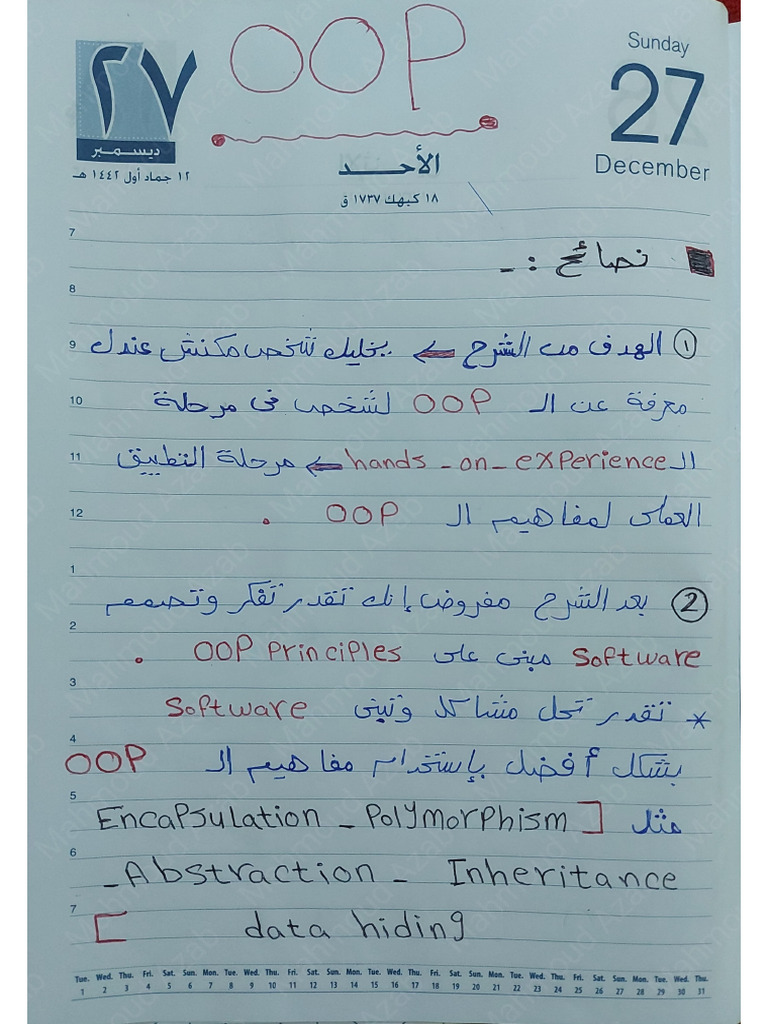 OOP
٢٧
ديسمبر
١٢ جماد أول ١٤٤٢ هـ
الأحـــد
١٨ كيهك ١٧٣٧ ق
Sunday
27
December
نصائح :-
① الهدف من الشرح ← يخليك شخص مكنش عندك
معرفة عن الـ OOP لشخص فى مرحلة
الـ hands-on-experience ← مرحلة التطبيق
العملى لمفاهيم الـ OOP .
② بعد الشرح مفروض إنك تقدر تفكر وتصمم
Software مبنى على OOP Principles .
* تقدر تحل مشاكل وتبنى Software
بشكل أفضل بإستخدام مفاهيم الـ OOP
مثل [ Encapsulation - Polymorphism
- Abstraction - Inheritance
data hiding ]
7
8
9
10
11
12
1
2
3
4
5
6
7
Tue. Wed. Thu. Fri. Sat. Sun. Mon. Tue. Wed. Thu. Fri. Sat. Sun. Mon. Tue. Wed. Thu. Fri. Sat. Sun. Mon. Tue. Wed. Thu. Fri. Sat. Sun. Mon. Tue. Wed. Thu.
1 2 3 4 5 6 7 8 9 10 11 12 13 14 15 16 17 18 19 20 21 22 23 24 25 26 27 28 29 30 31
Mahmoud Azzab